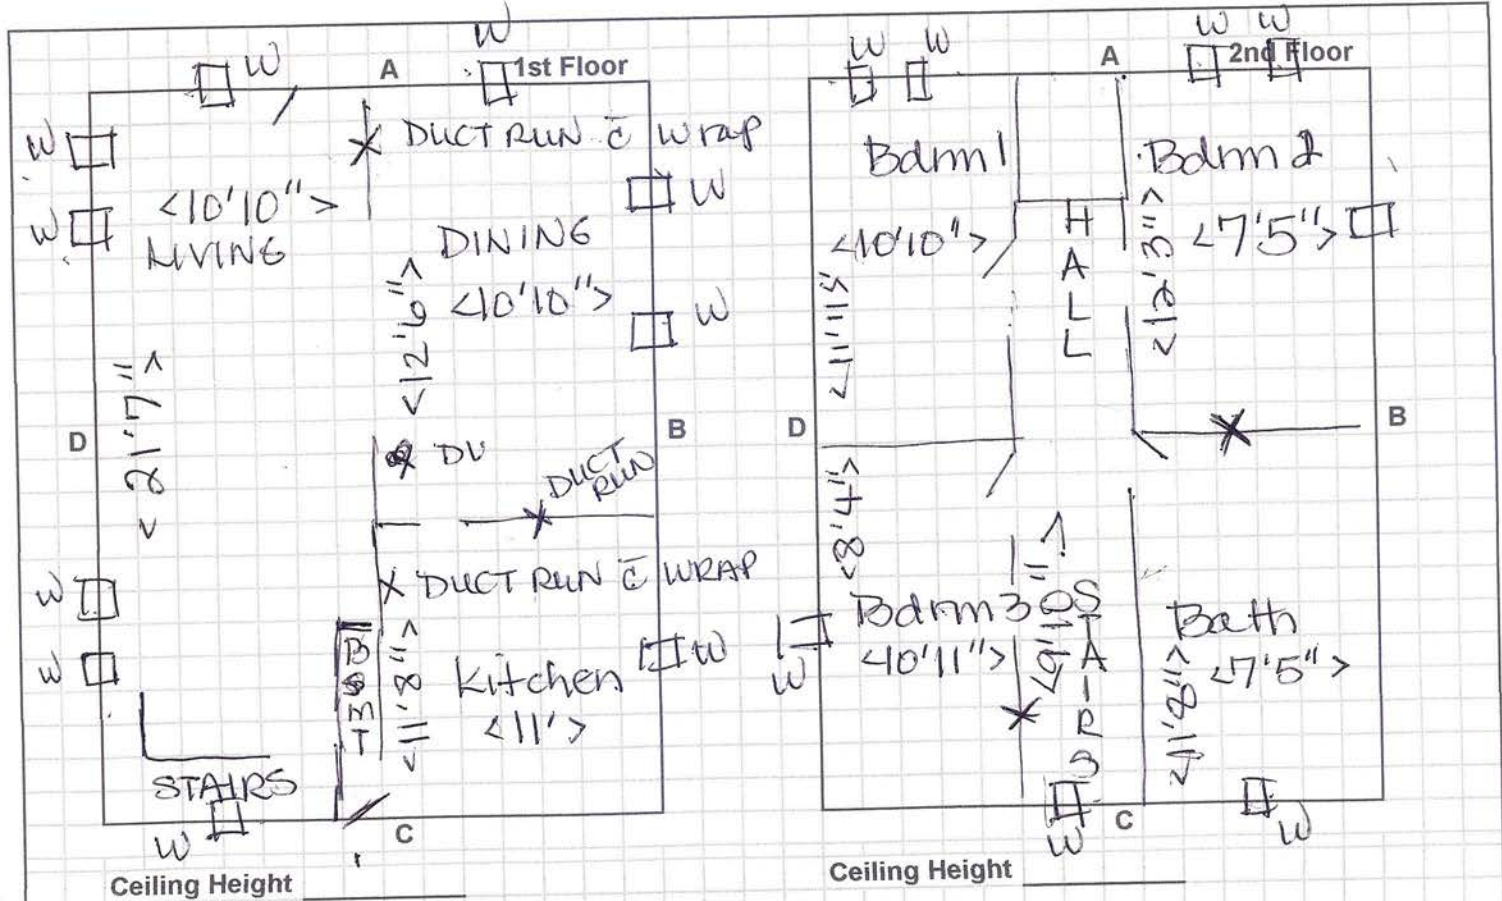 W
W
A
1st Floor
W
W
DUCT RUN c̄ Wrap
W
<10'10">
LIVING
DINING
<10'10">
W
<12'6">
<21'7">
D
B
DU
DUCT
RUN
W
DUCT RUN c̄ WRAP
W
BSMT
<11'8">
Kitchen
<11'>
W
STAIRS
W
C
Ceiling Height
W
W
A
W
W
2nd Floor
Bdrm 1
Bdrm 2
<10'10">
HALL
<12'3">
<7'5">
<11'11">
D
B
<8'4">
Bdrm 3
<10'11">
W
<9'10">
STAIRS
Bath
<7'5">
<11'8">
W
C
W
Ceiling Height